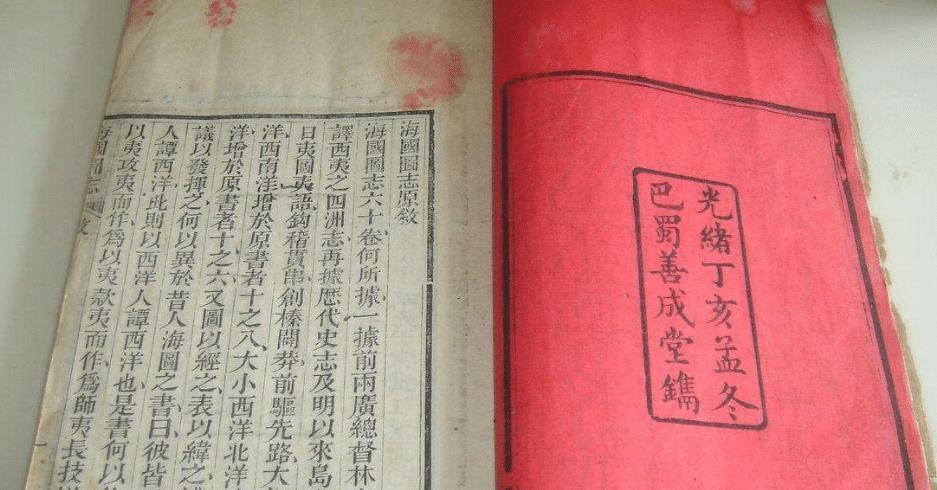 光緒丁亥孟冬
巴蜀善成堂鐫
海國圖志原敘
海國圖志六十卷何所據一據前兩廣總督林
譯西夷之四洲志再據歷代史志及明以來島
日夷圖夷語鈎稽貫串創榛闢莽前驅先路大
洋西南洋增於原書者十之八大小西洋北洋
洋增於原書者十之六又圖以經之表以緯之
議以發揮之何以異於昔人海圖之書曰彼皆
人譚西洋此則以西洋人譚西洋也是書何以
以夷攻夷而作爲以夷款夷而作爲師夷長技
海國圖志 敘